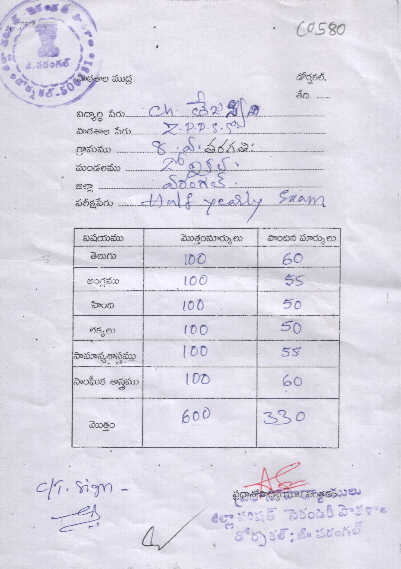 C0580
పాఠశాల ముద్ర
డోర్నకల్,
తేది ......
విద్యార్థి పేరు Ch.
పాఠశాల పేరు Z.P.P.S.S.
గ్రామము 8 వ తరగతి
మండలము
జిల్లా వరంగల్
పరీక్షపేరు Half yearly Exam
విషయము మొత్తంమార్కులు పొందిన మార్కులు
తెలుగు 100 60
ఆంగ్లము 100 55
హింది 100 50
లెక్కలు 100 50
సామాన్యశాస్త్రము 100 55
సాంఘీక శాస్త్రము 100 60
మొత్తం 600 330
C/T. Sign -
జిల్లా పరిషత్ సెకండరీ పాఠశాల
డోర్నకల్; జి. వరంగల్